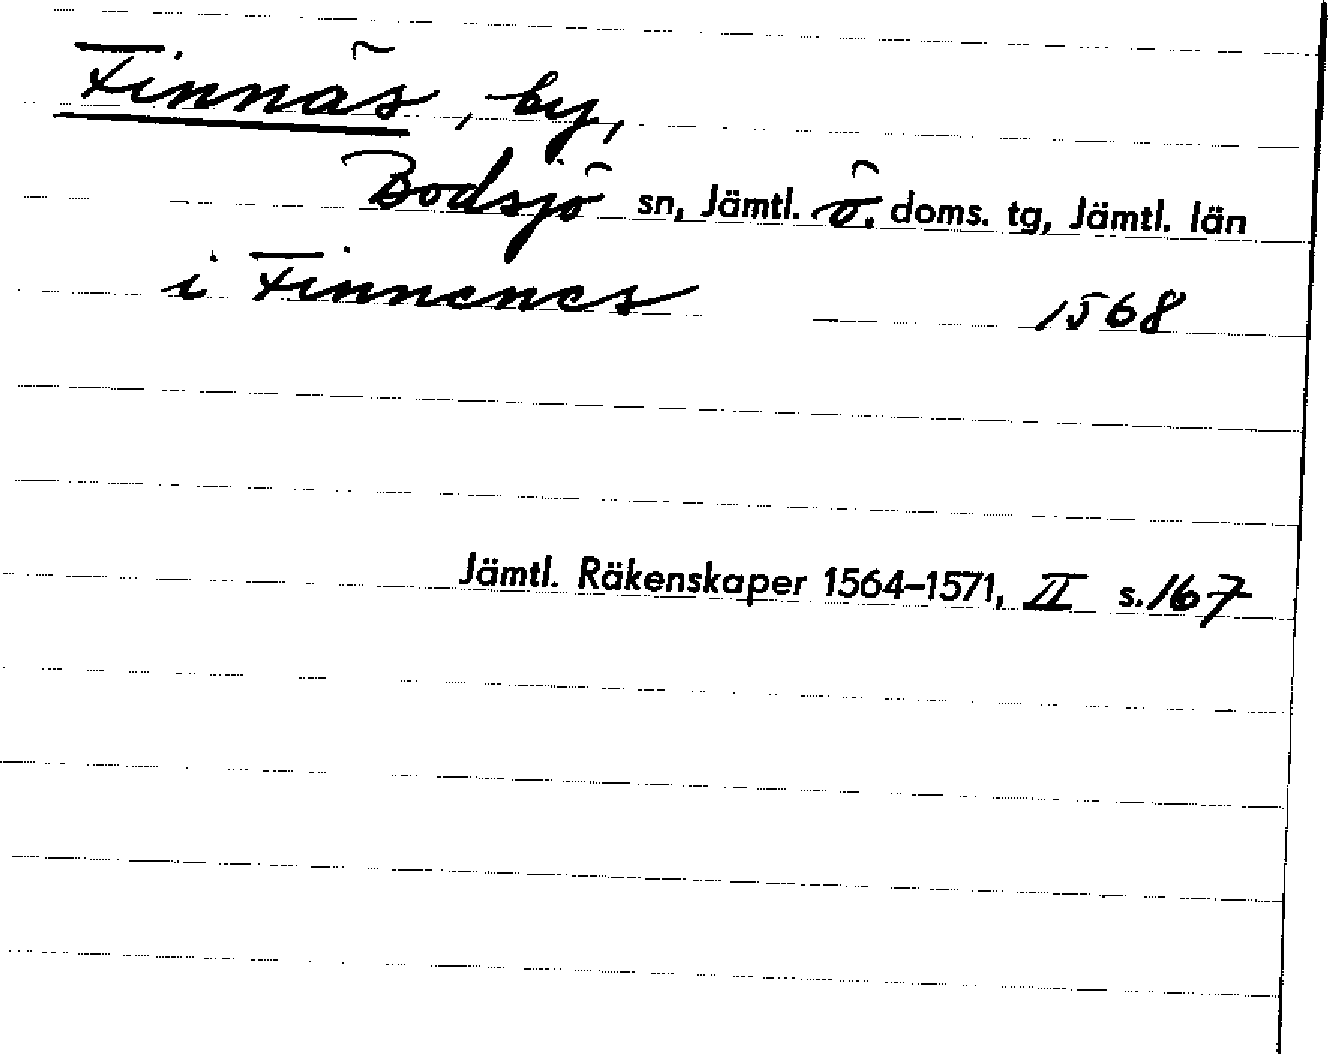 Finnäs, by,
Bodsjö sn, Jämtl. ö. doms. tg, Jämtl. län
i Finnenes 1568
Jämtl. Räkenskaper 1564–1571, II s. 167